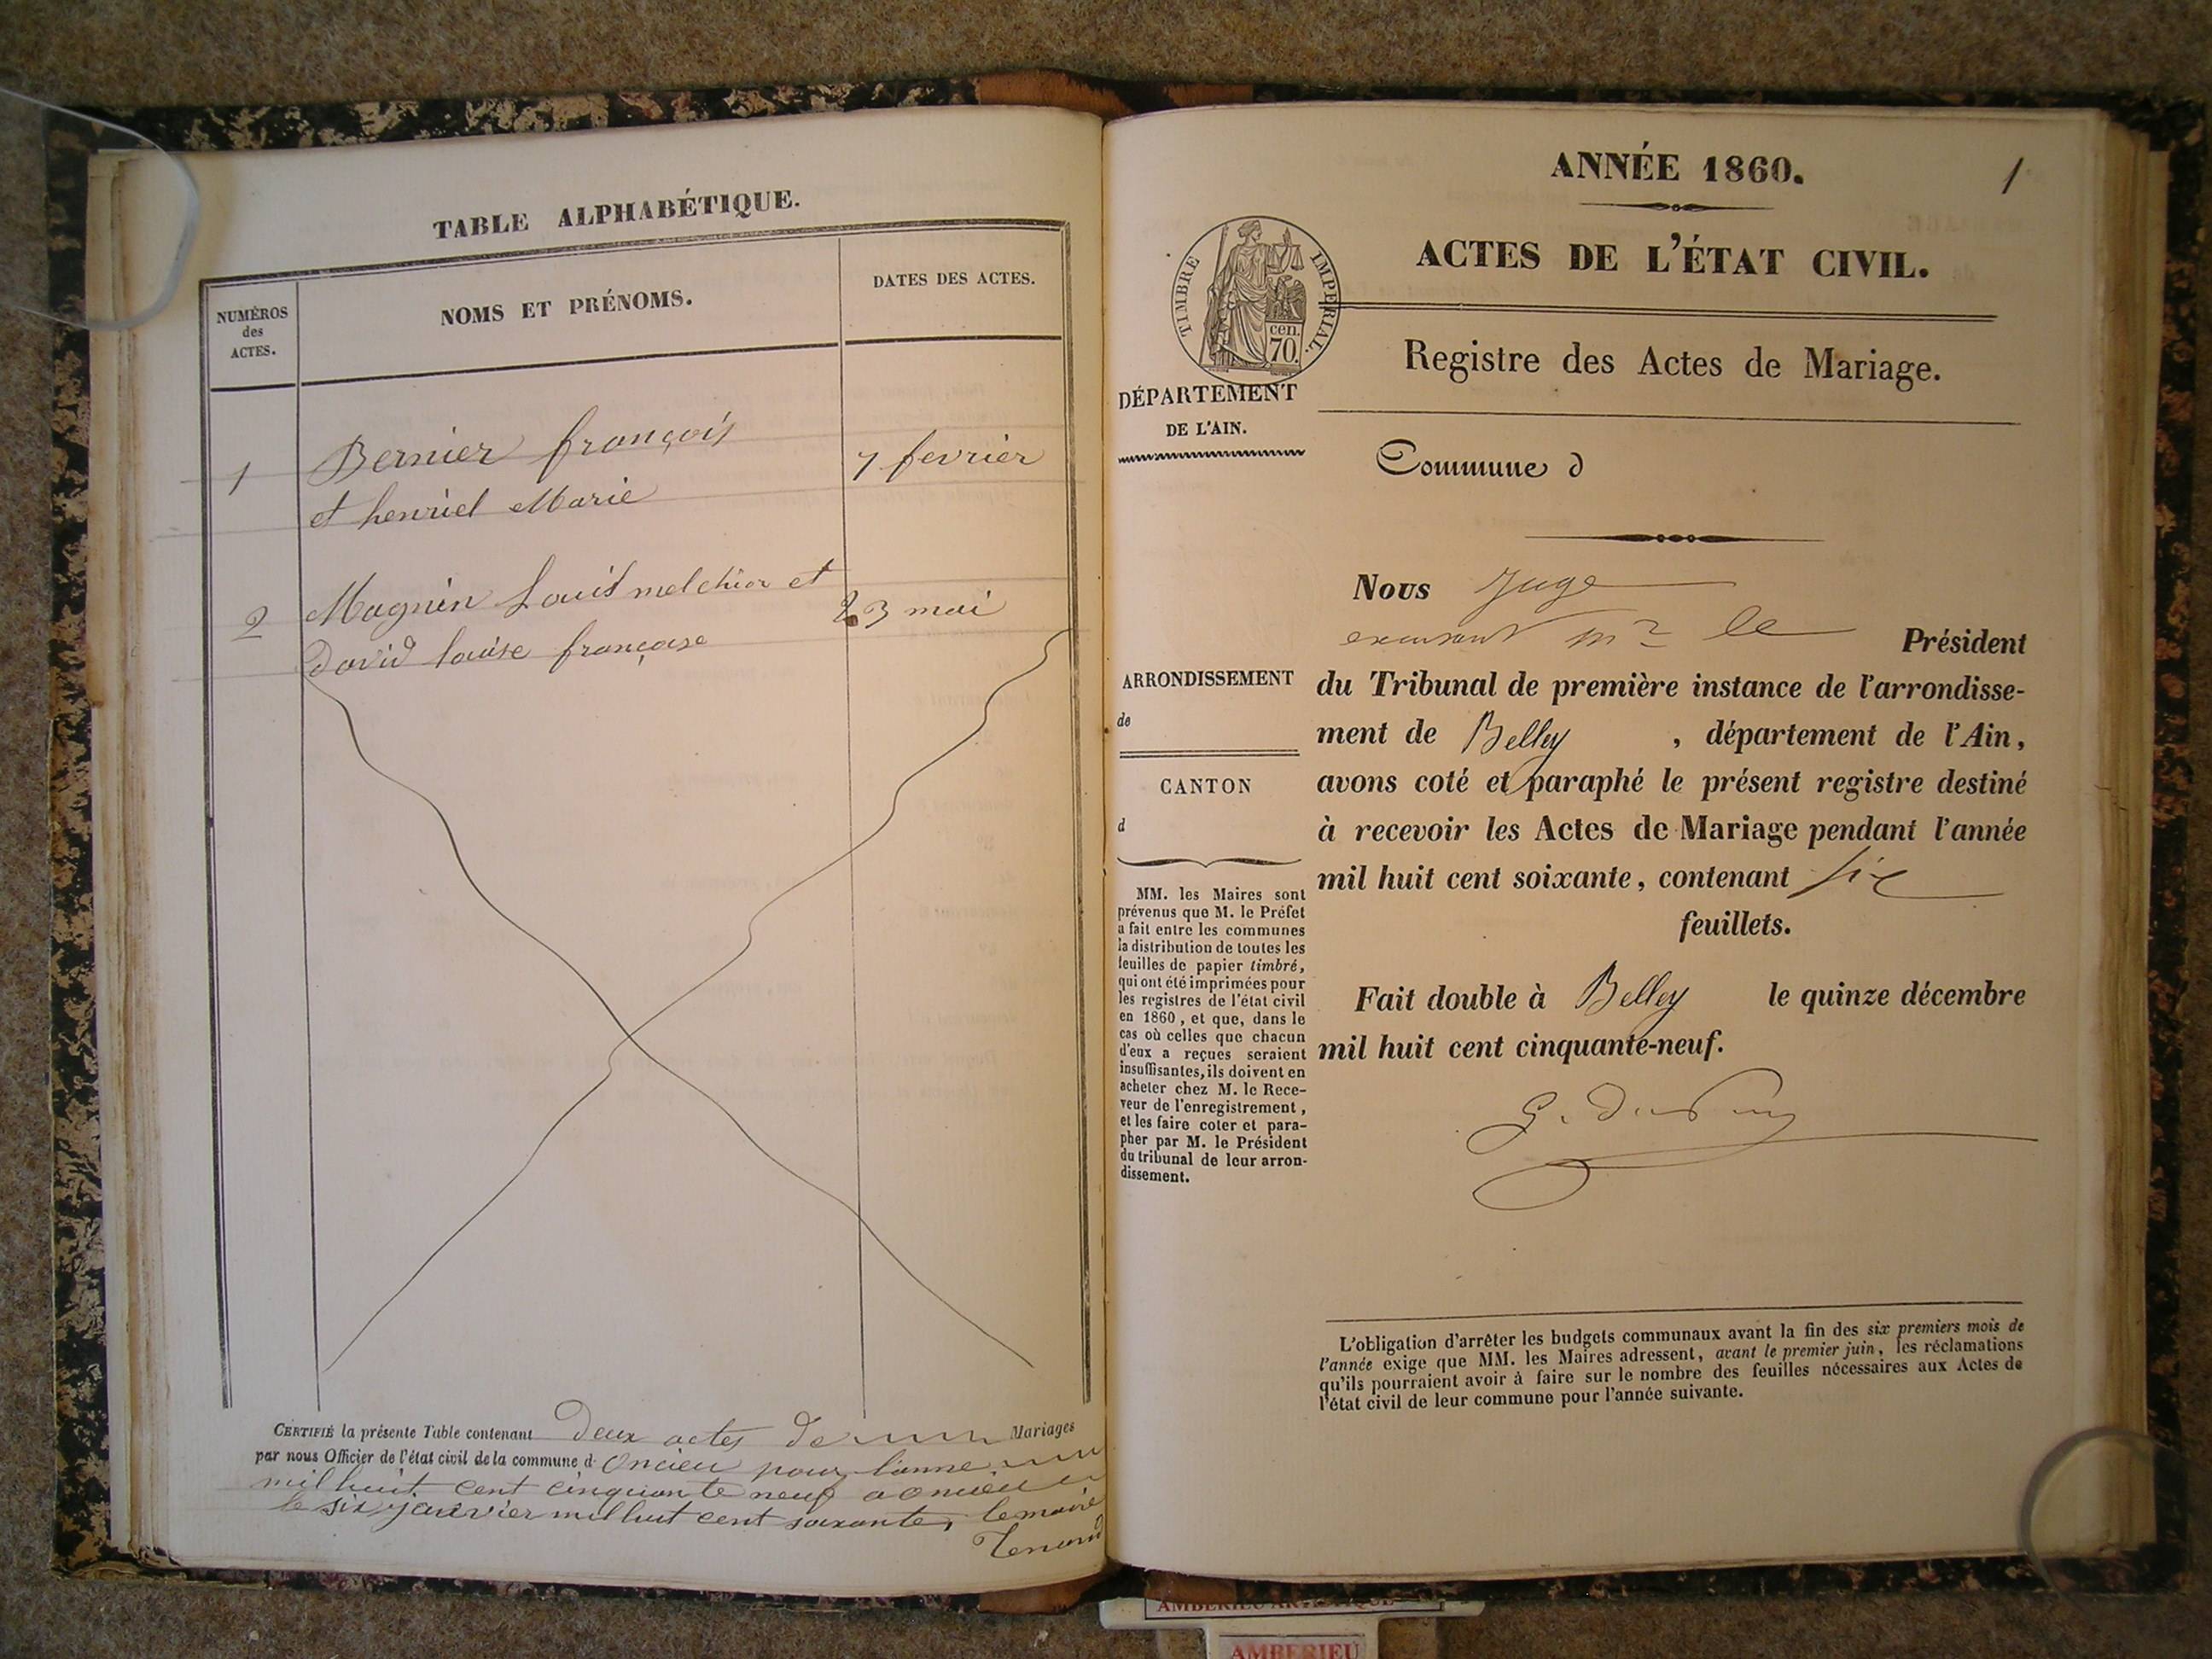 TABLE ALPHABÉTIQUE.
NUMÉROS
des
ACTES.
NOMS ET PRÉNOMS.
DATES DES ACTES.
1
Bernier françois
et henriel Marie
7 fevrier
2
Magnin Louis melchior et
David louise françoise
23 mai
CERTIFIÉ la présente Table contenant deux actes de Mariages
par nous Officier de l'état civil de la commune d Oncieu pour l'anne
mil huit cent cinquante neuf a oncieu
le six janvier mil huit cent soixante, le maire
ANNÉE 1860.
1
ACTES DE L'ÉTAT CIVIL.
TIMBRE IMPERIAL.
cen.
70.
Registre des Actes de Mariage.
DÉPARTEMENT
DE L'AIN.
Commune d
Nous Juge
Mr le Président
ARRONDISSEMENT
de
du Tribunal de première instance de l'arrondisse-
ment de Belley , département de l'Ain,
CANTON
d
avons coté et paraphé le présent registre destiné
à recevoir les Actes de Mariage pendant l'année
mil huit cent soixante, contenant six
feuillets.
Fait double à Belley le quinze décembre
mil huit cent cinquante-neuf.
MM. les Maires sont
prévenus que M. le Préfet
a fait entre les communes
la distribution de toutes les
feuilles de papier timbré,
qui ont été imprimées pour
les registres de l'état civil
en 1860, et que, dans le
cas où celles que chacun
d'eux a reçues seraient
insuffisantes, ils doivent en
acheter chez M. le Rece-
veur de l'enregistrement,
et les faire coter et para-
pher par M. le Président
du tribunal de leur arron-
dissement.
L'obligation d'arrêter les budgets communaux avant la fin des six premiers mois de
l'année exige que MM. les Maires adressent, avant le premier juin, les réclamations
qu'ils pourraient avoir à faire sur le nombre des feuilles nécessaires aux Actes de
l'état civil de leur commune pour l'année suivante.
AMBERIEU